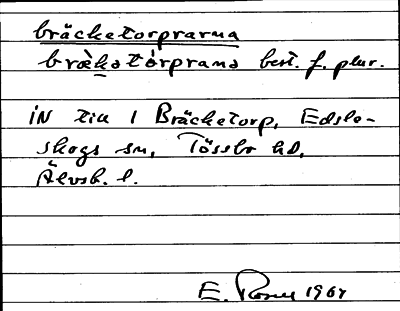 bräcketorprarna
bräkatȯrprana best. f. plur.
iN till 1 Bräcketorp, Edsle-
skogs sn, Tössbo hd,
Älvsb. l.
E. Rosen 1967